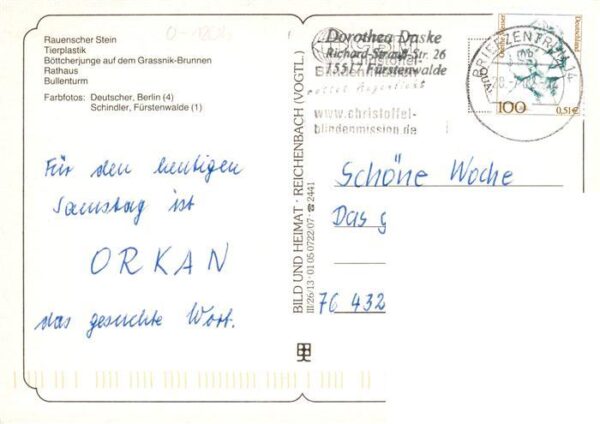 Rauenscher Stein
Tierplastik
Böttcherjunge auf dem Grassnik-Brunnen
Rathaus
Bullenturm
Farbfotos: Deutscher, Berlin (4)
Schindler, Fürstenwalde (1)
Für den heutigen
Samstag ist
ORKAN
das gesuchte Wort.
BILD UND HEIMAT · REICHENBACH (VOGTL.)
III/26/13 · 01 05 0722/07 · ☎ 2441
Dorothea Daske
Richard-Strauß-Str. 26
15517 Fürstenwalde
rettet Augenlicht
www.christoffel-
blindenmission.de
BRIEFZENTRUM
mb
Deutschland
100
0,51€
Schöne Woche
Das g
76 432